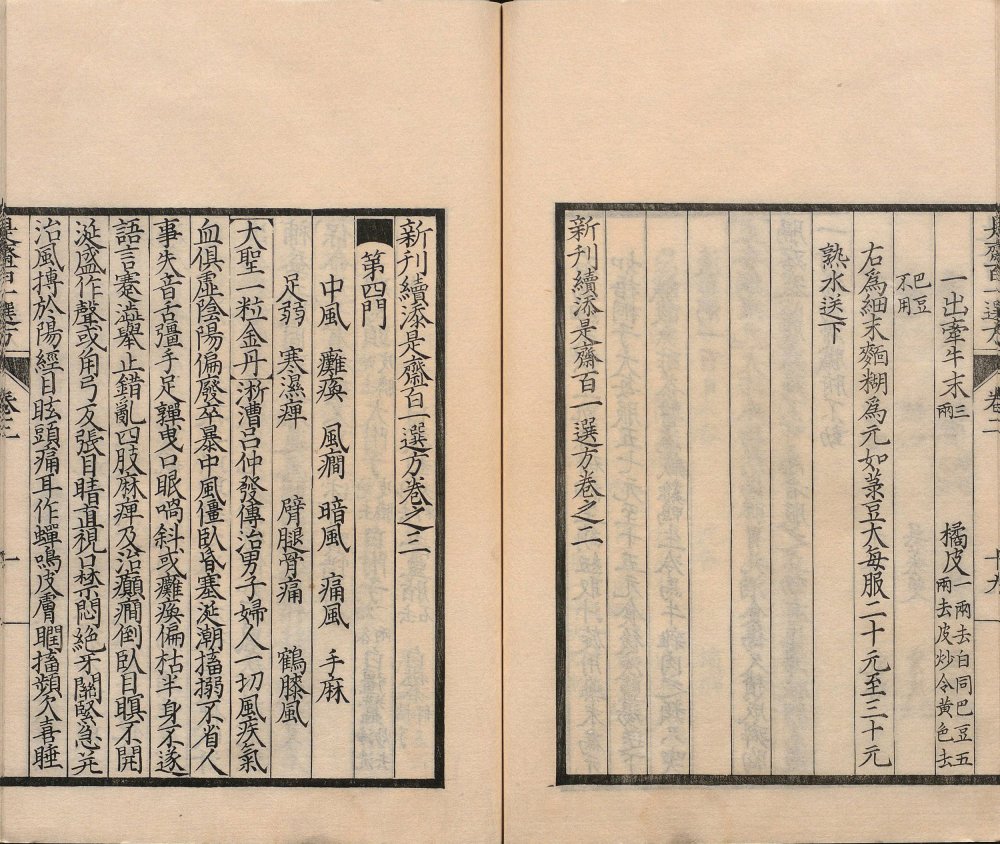 是齋百一選方 卷二 十九
一出牽牛末三兩 橘皮一兩去白同巴豆五兩去皮炒令黄色去
巴豆不用
右為細末麵糊為元如菉豆大每服二十元至三十元
熟水送下
新刊續添是齋百一選方卷之二
新刊續添是齋百一選方卷之三
第四門
中風 癱瘓 風癇 暗風 痛風 手麻
足弱 寒濕痺 臂腿骨痛 鶴膝風
大聖一粒金丹 淅漕呂仲發傳治男子婦人一切風疾氣
血俱虛陰陽偏廢卒暴中風僵臥昏塞涎潮搐搦不省人
事失音舌彊手足嚲曳口眼喎斜或癱瘓偏枯半身不遂
語言蹇澁舉止錯亂四肢麻痺及治癲癇倒臥目瞑不開
涎盛作聲或角弓反張目睛直視口禁悶絕牙關緊急并
治風搏於陽經目眩頭痛耳作蟬鳴皮膚瞤搐頻欠喜睡
是齋百一選方 卷三 一